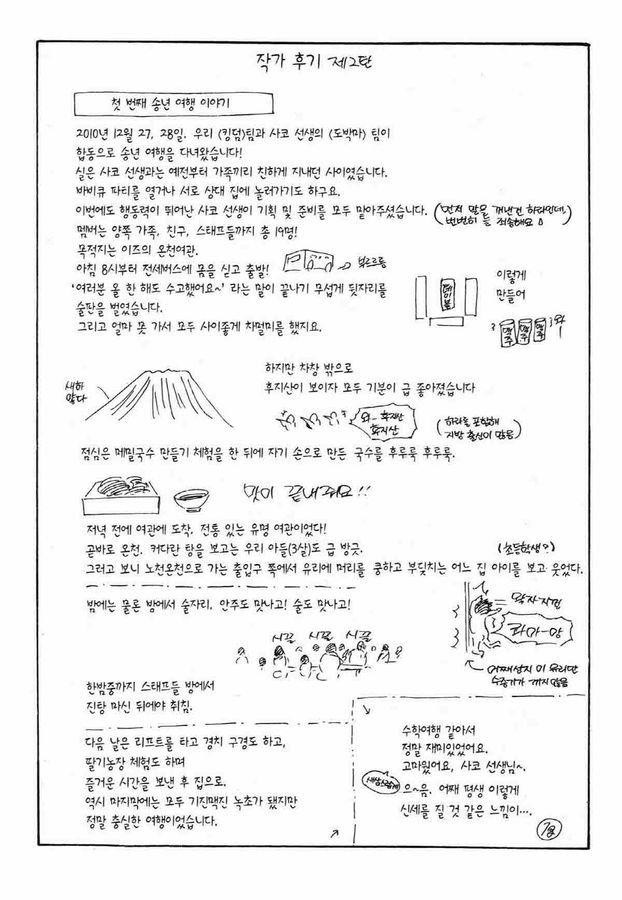 작가 후기 제2탄
첫 번째 송년 여행 이야기
2010년 12월 27, 28일. 우리 <킹덤>팀과 사코 선생의 <도박마> 팀이
합동으로 송년 여행을 다녀왔습니다!
실은 사코 선생과는 예전부터 가족끼리 친하게 지내던 사이였습니다.
바비큐 파티를 열거나 서로 상대 집에 놀러가기도 하구요.
이번에도 행동력이 뛰어난 사코 선생이 기획 및 준비를 모두 맡아주셨습니다.
(먼저 말을 꺼낸건 하라인데,
번번히 죄송해요)
멤버는 양쪽 가족, 친구, 스태프들까지 총 19명!
목적지는 이즈의 온천여관.
아침 8시부터 전세버스에 몸을 싣고 출발!
부르릉
'여러분 올 한 해도 수고했어요~' 라는 말이 끝나기 무섭게 뒷자리를
술판을 벌였습니다.
그리고 얼마 못 가서 모두 사이좋게 차멀미를 했지요.
테이블
이렇게
만들어
맥주
맥주
맥주
와-!
하지만 차창 밖으로
후지산이 보이자 모두 기분이 급 좋아졌습니다
새하
얗다
와- 후지산
후지산
(하라를 포함해
지방 출신이 많음)
점심은 메밀국수 만들기 체험을 한 뒤에 자기 손으로 만든 국수를 후루룩 후루룩.
맛이 끝내줘요!!
저녁 전에 여관에 도착, 전통 있는 유명 여관이었다!
곧바로 온천. 커다란 탕을 보고는 우리 아들(3살)도 급 방긋.
(초등학생?)
그러고 보니 노천온천으로 가는 출입구 쪽에서 유리에 머리를 쿵하고 부딪치는 어느 집 아이를 보고 웃었다.
밤에는 물론 방에서 술자리. 안주도 맛나고! 술도 맛나고!
시끌 시끌 시끌
콰아-앙
어째선지 이 유리만
수증기가 끼지 않음
한밤중까지 스태프들 방에서
진탕 마신 뒤에야 취침.
다음 날은 리프트를 타고 경치 구경도 하고,
딸기농장 체험도 하며
즐거운 시간을 보낸 후 집으로.
역시 마지막에는 모두 기진맥진 녹초가 됐지만
정말 충실한 여행이었습니다.
수학여행 같아서
정말 재미있었어요.
고마웠어요, 사코 선생님~.
새삼스럽게
으~음. 어째 평생 이렇게
신세를 질 것 같은 느낌이….